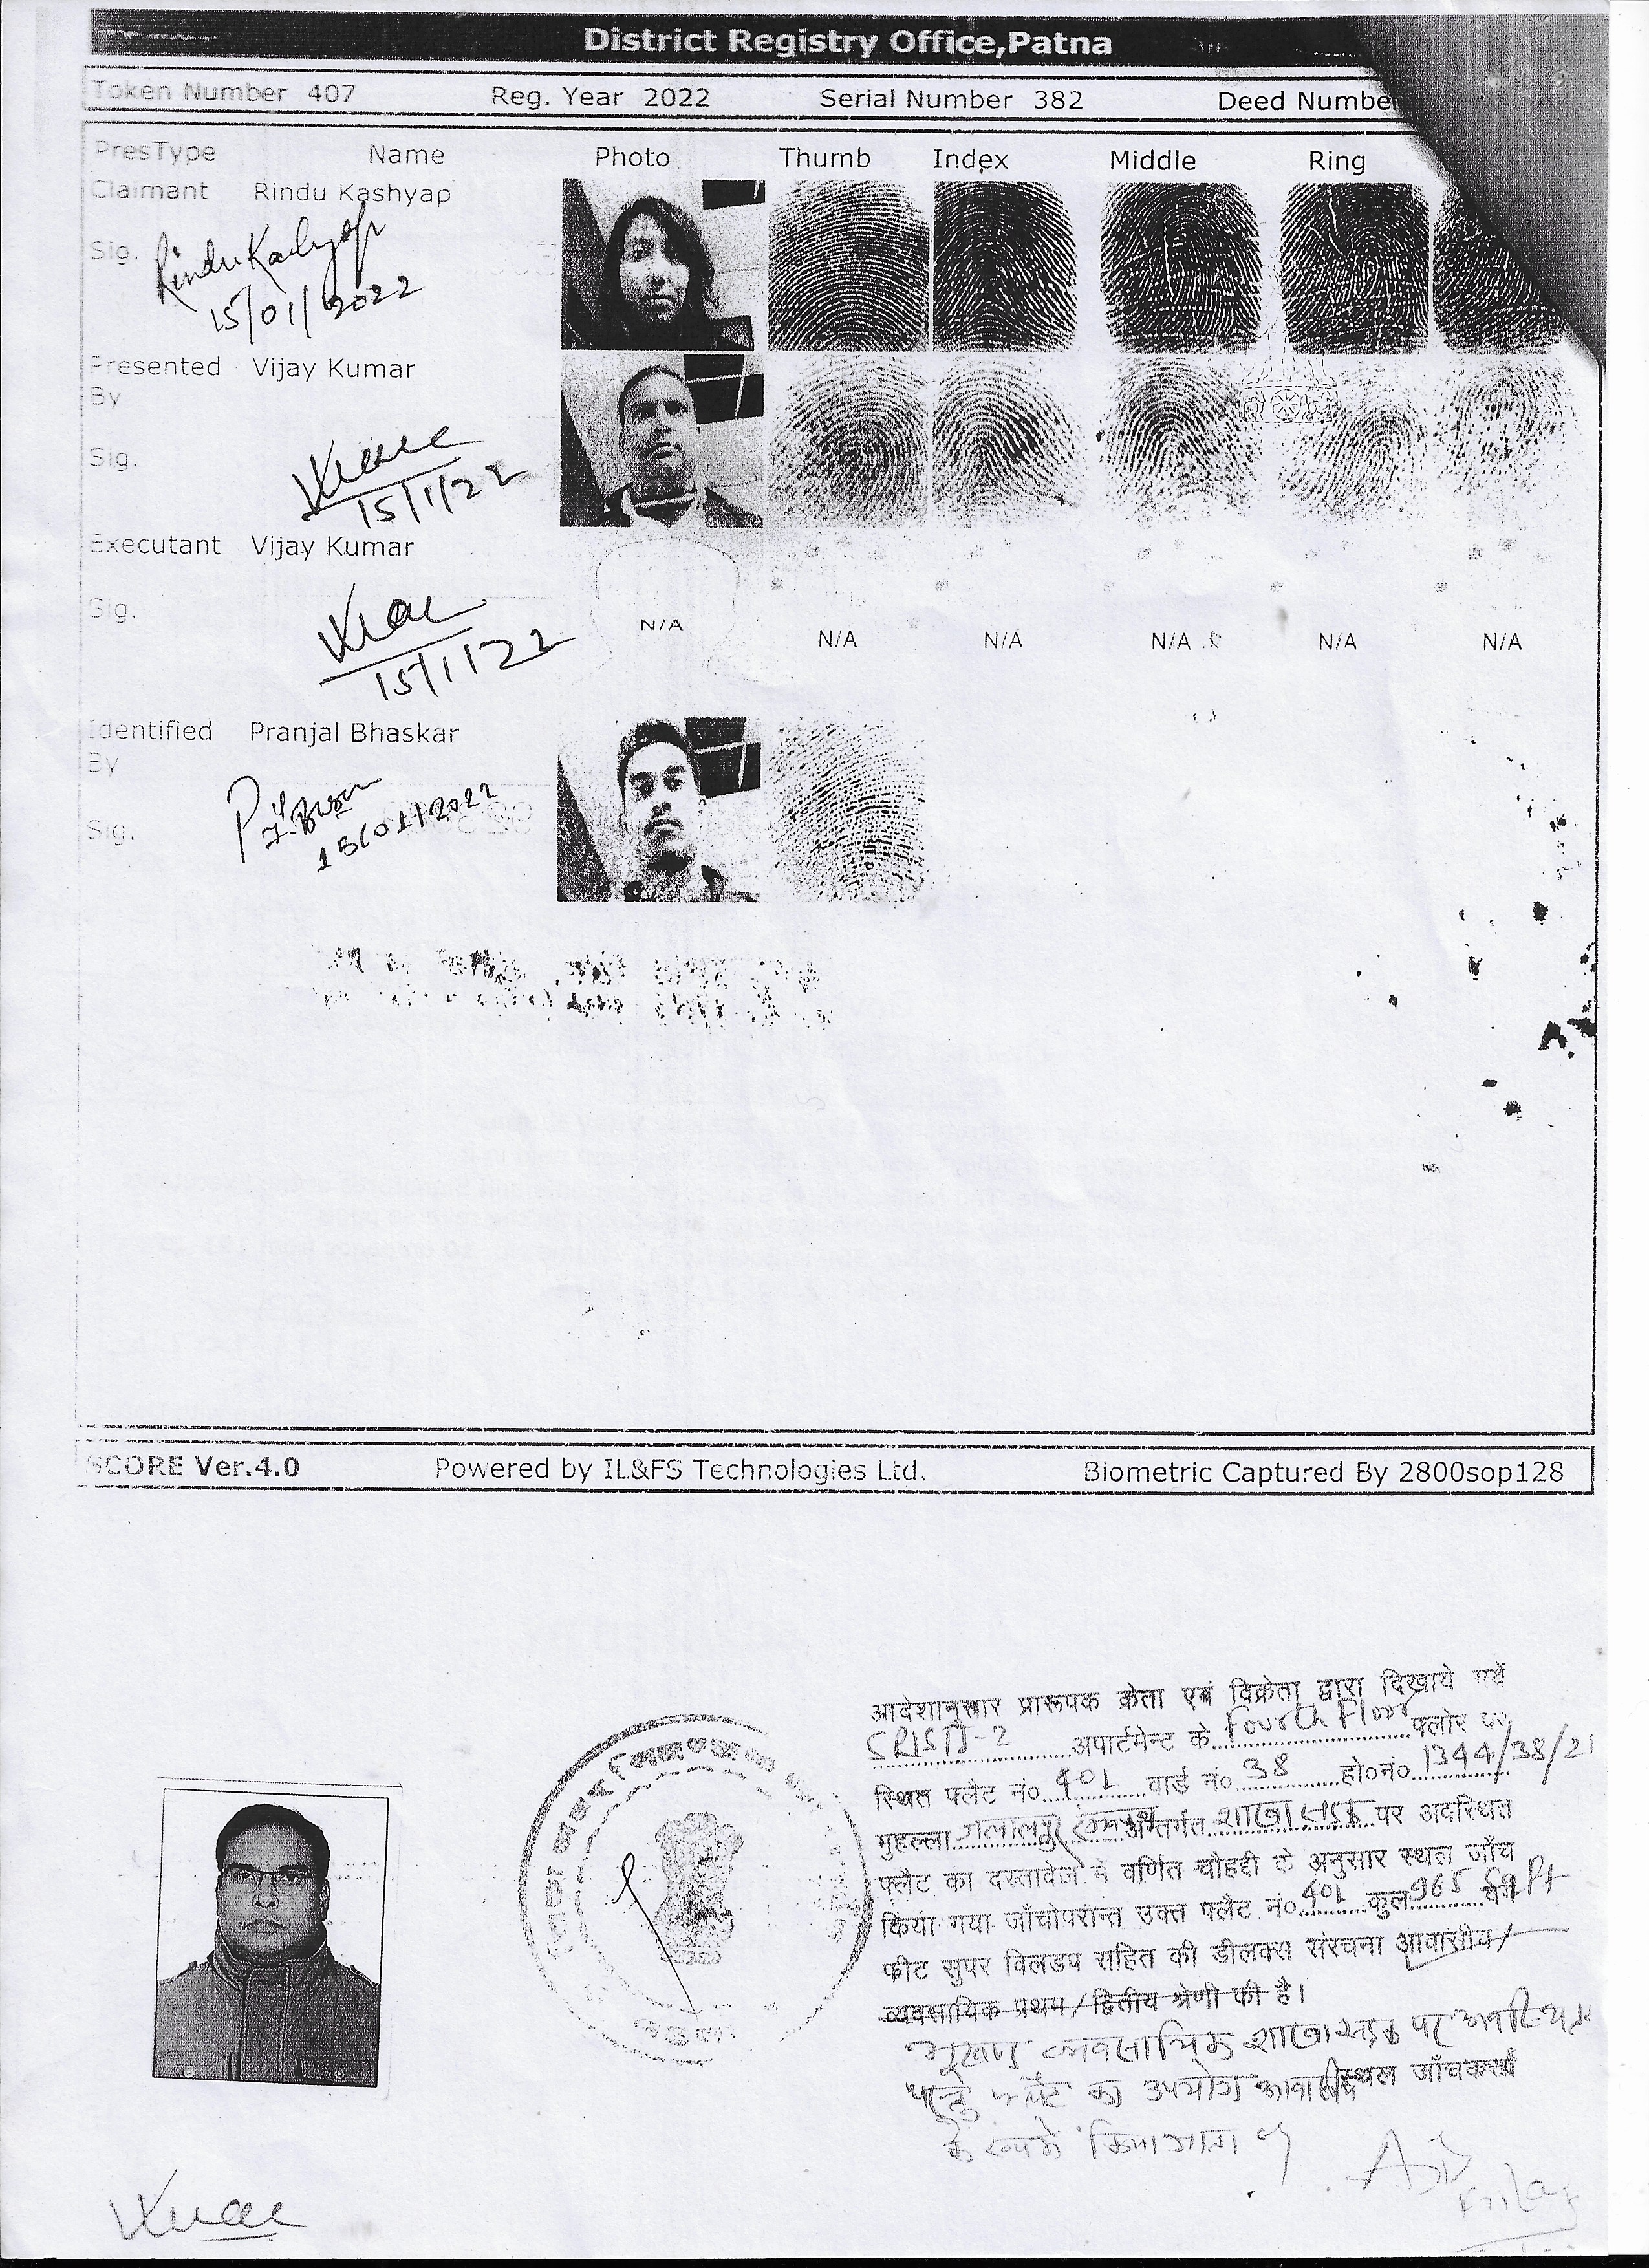 District Registry Office,Patna
Token Number 407 Reg. Year 2022 Serial Number 382 Deed Number
PresType Name Photo Thumb Index Middle Ring
Claimant Rindu Kashyap
Sig. Rindu Kashyap
15/01/2022
Presented Vijay Kumar
By
Sig.
15/1/22
Executant Vijay Kumar
Sig.
15/1/22
N/A N/A N/A N/A N/A N/A
Identified Pranjal Bhaskar
By
Sig.
15/01/2022
SCORE Ver.4.0 Powered by IL&FS Technologies Ltd. Biometric Captured By 2800sop128
आदेशानुसार प्रारूपक क्रेता एवं विक्रेता द्वारा दिखाये गये
SRISTI-2 अपार्टमेन्ट के Fourth Floor फ्लोर पर
स्थित फ्लैट नं० 401 वार्ड नं० 38 हो०नं० 1344/38/21
मुहल्ला अन्तर्गत शाखा सड़क पर अवस्थित
फ्लैट का दस्तावेज में वर्णित चौहद्दी के अनुसार स्थल जाँच
किया गया जाँचोपरान्त उक्त फ्लैट नं० 401 कुल 965 Sq Ft
फीट सुपर विलडप सहित की डीलक्स संरचना आवासीय/
व्यवसायिक प्रथम/द्वितीय श्रेणी की है।
व्यवसायिक शाखा सड़क पर अवस्थित
परन्तु फ्लैट का उपयोग आवासीय स्थल जाँचकर्त्ता
के रूप में किया